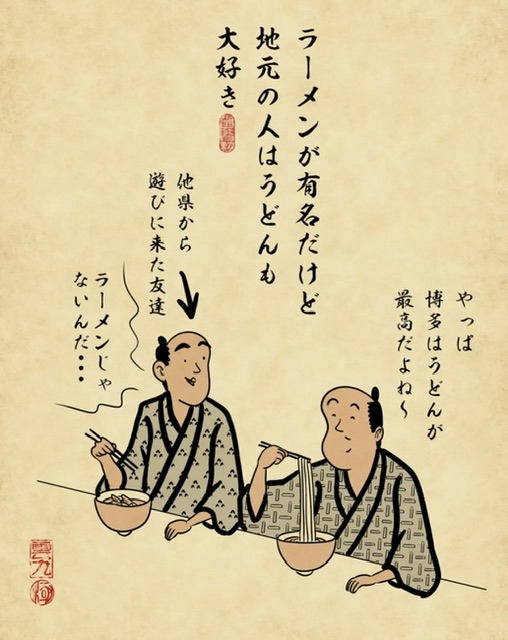 ラーメンが有名だけど
地元の人はうどんも
大好き
やっぱ
博多はうどんが
最高だよね〜
他県から
遊びに来た友達
ラーメンじゃ
ないんだ•••